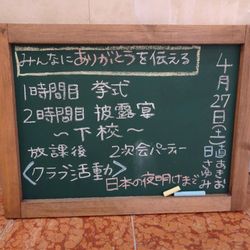 みんなにありがとうを伝える
1時間目 挙式
2時間目 披露宴
〜下校〜
放課後 2次会パーティー
〈クラブ活動〉 日本の夜明けまで
4月27日(土)
日直 あきお さゆみ